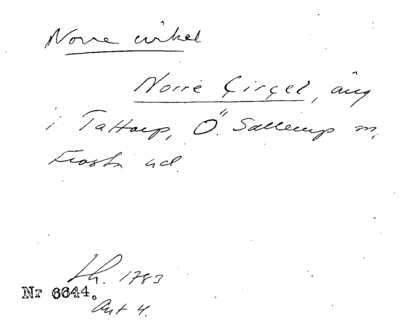 Norre cirkel
Norre Çirçel, äng
i Tattarp, Ö. Sallerup sn,
Frosta hd.
Lh. 1783
Nr 6644.
Akt 4.